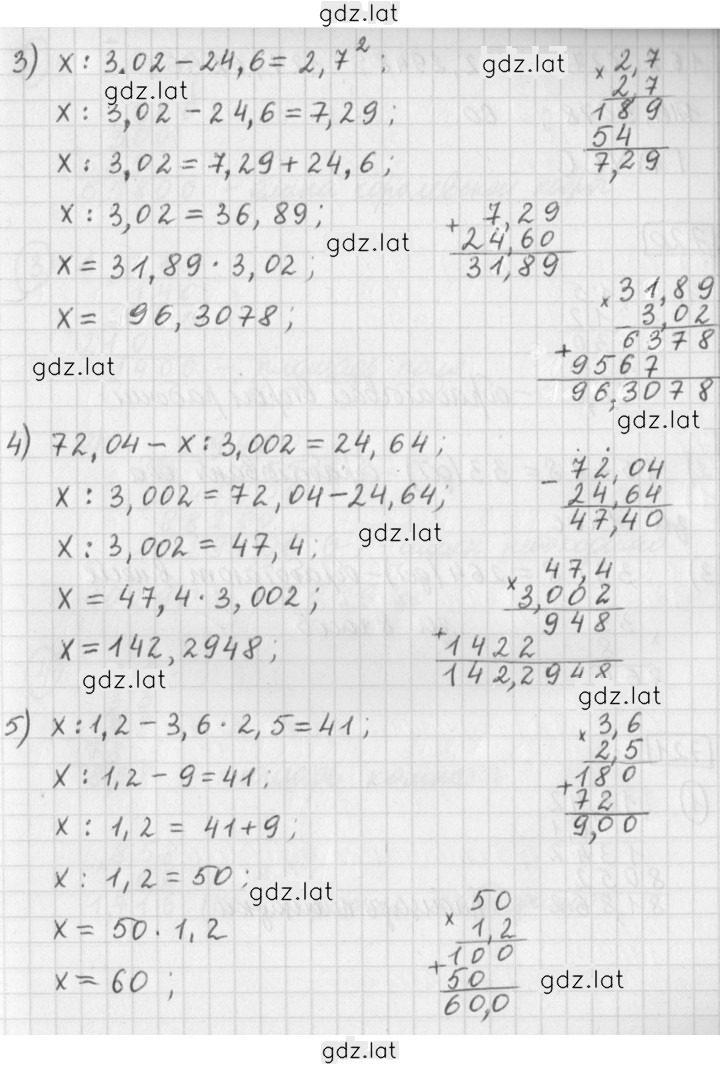 gdz.lat
3) x : 3.02 − 24,6 = 2,7²;
gdz.lat
gdz.lat
x : 3,02 − 24,6 = 7,29;
x : 3,02 = 7,29 + 24,6;
x : 3,02 = 36,89;
gdz.lat
x = 31,89 · 3,02;
x = 96,3078;
gdz.lat
× 2,7
2,7
189
54
7,29
+ 7,29
24,60
31,89
× 31,89
3,02
6378
+ 9567
96,3078
gdz.lat
4) 72,04 − x : 3,002 = 24,64;
x : 3,002 = 72,04 − 24,64;
gdz.lat
x : 3,002 = 47,4;
x = 47,4 · 3,002;
x = 142,2948;
gdz.lat
− 72,04
24,64
47,40
× 47,4
3,002
948
+ 1422
142,2948
gdz.lat
5) x : 1,2 − 3,6 · 2,5 = 41;
x : 1,2 − 9 = 41;
x : 1,2 = 41 + 9;
x : 1,2 = 50;
gdz.lat
x = 50 · 1,2
x = 60;
× 3,6
2,5
+ 180
72
9,00
× 50
1,2
+ 100
50
60,0
gdz.lat
gdz.lat